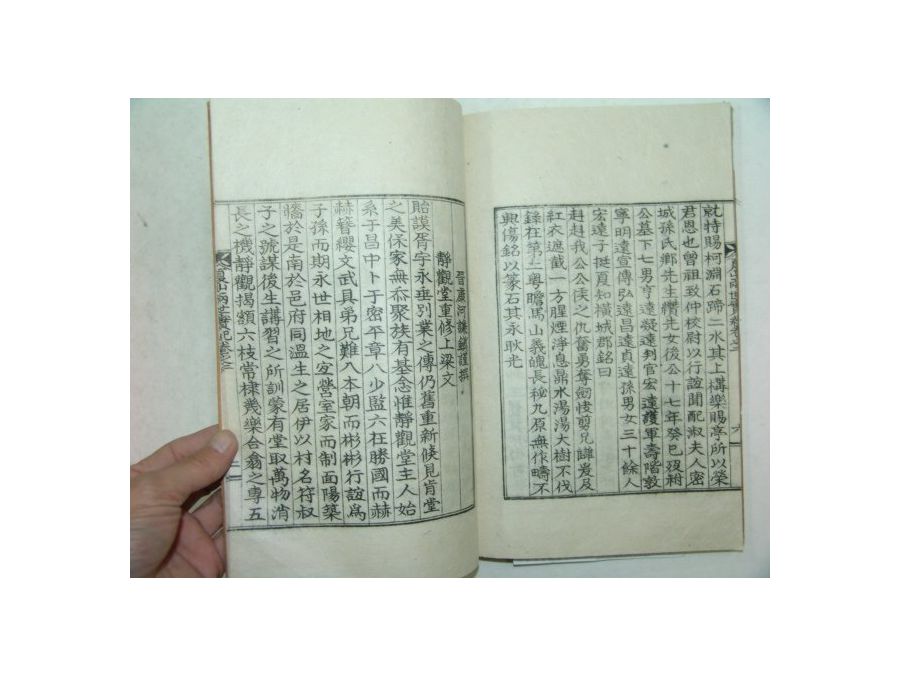 就特賜柯淵石蹄二水其上構樂賜亭所以榮
君恩也曾祖致仲校尉以行誼聞配淑夫人密
城孫氏鄉先生纘先女後公十七年癸巳沒祔
公墓下七男亨遠凝遠判官宏遠護軍壽階敦
寧明遠宣傳弘遠昌遠貞遠孫男女三十餘人
宏遠子挺夏知橫城郡銘曰
赳赳我公公俠之仇奮勇奪劒恢剪兄讎發及
紅衣遮截一方腥煙淨息鼎水湯湯大樹不伐
錄在第二粤瞻馬山義魄長秘九原無作疇不
興傷銘以篆石其永耿光
晉康河謙鎭謹撰
靜觀堂重修上梁文
貽謨胥宇永垂別業之傳仍舊重新倐見肯堂
之美保家無忝聚族有基念惟靜觀堂主人始
系于昌中卜于密平章八少監六在勝國而赫
赫簪纓文武具弟兄難八本朝而彬彬行誼爲
子孫而期永世相地之宜營室家而制面陽築
墻於是南於邑府同溫生之居伊以村名符叔
子之號謀後生講習之所訓蒙有堂取萬物消
長之機靜觀揭額六枝常棣幾樂合翕之專五